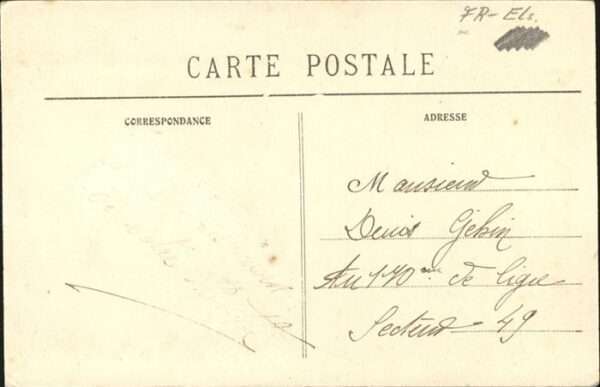 FR-Els.
CARTE POSTALE
CORRESPONDANCE
ADRESSE
Monsieur
Denis Gebin
Au 170me de ligne
Secteur 49